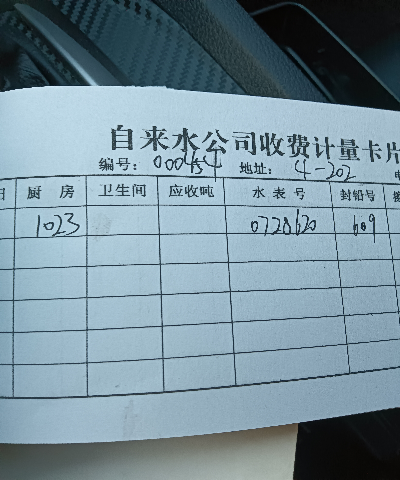 自来水公司收费计量卡片
编号: 000454 地址: 4-202
厨房 卫生间 应收吨 水表号 封铅号
1023 0728620 609